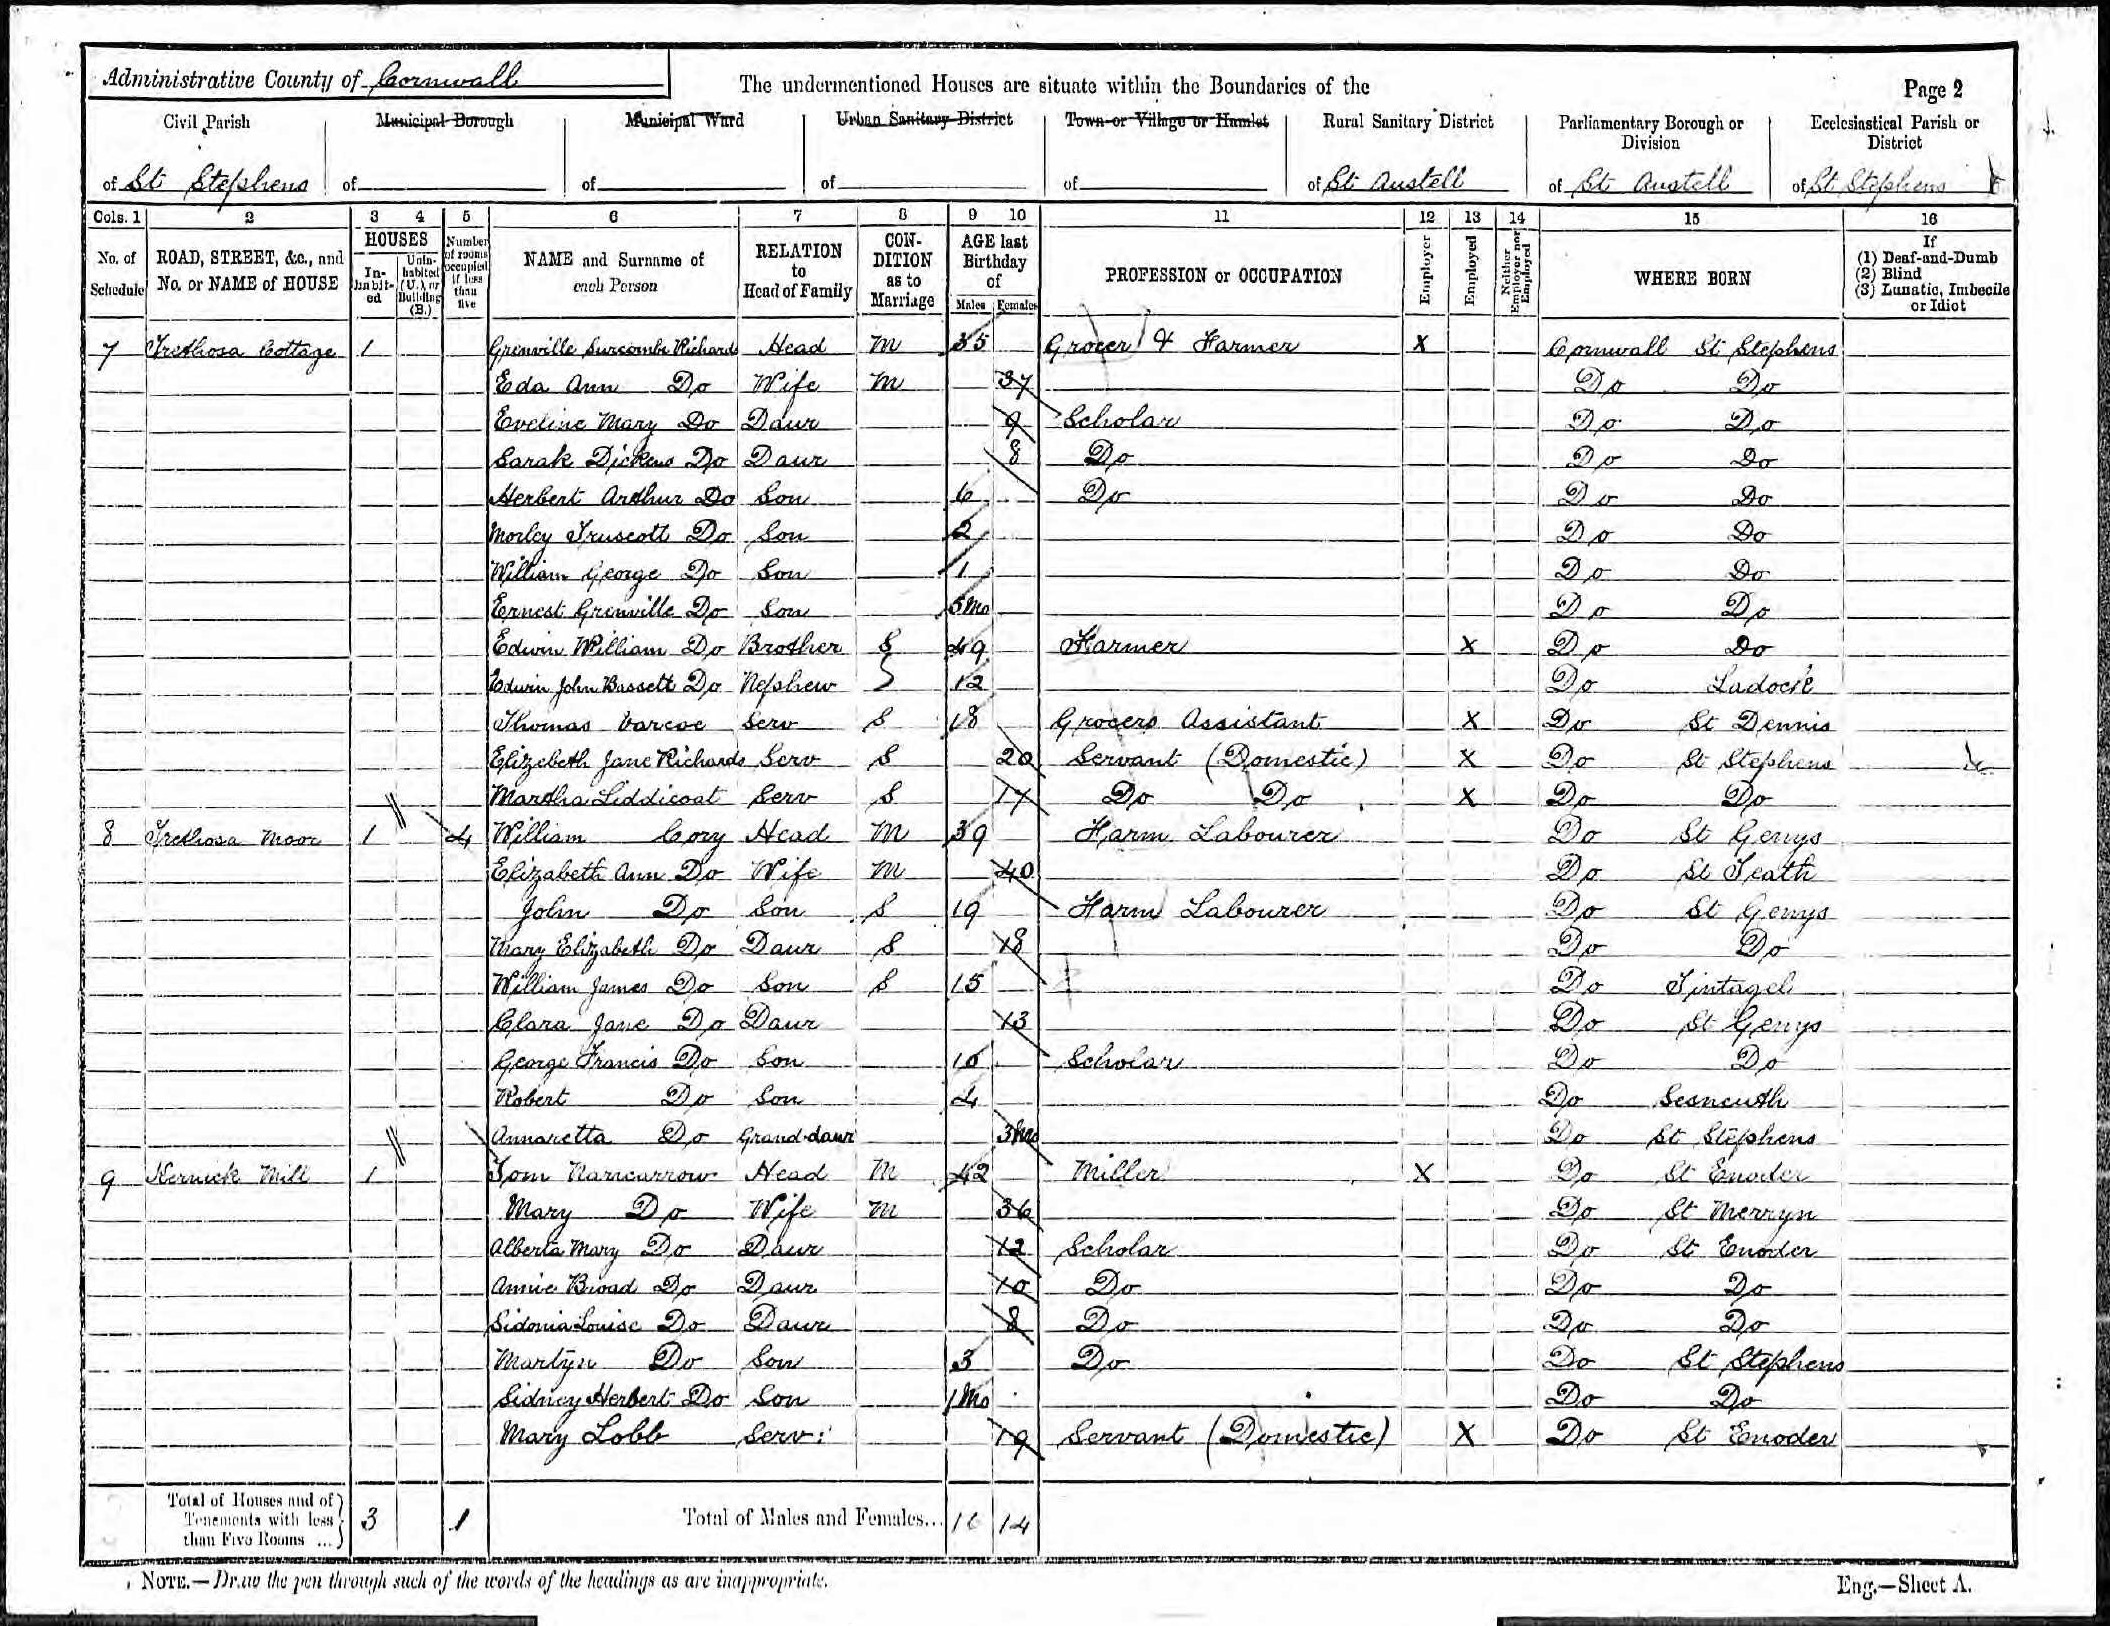 Administrative County of Cornwall The undermentioned Houses are situate within the Boundaries of the Page 2
Civil Parish Municipal Borough Municipal Ward Urban Sanitary District Town or Village or Hamlet Rural Sanitary District Parliamentary Borough or Division Ecclesiastical Parish or District
of St Stephens of of of of of St Austell of St Austell of St Stephens
Cols. 1 2 3 4 5 6 7 8 9 10 11 12 13 14 15 16
No. of Schedule ROAD, STREET, &c., and No. or NAME of HOUSE HOUSES In-habit-ed Unin-habited (U.), or Building (B.) Number of rooms occupied if less than five NAME and Surname of each Person RELATION to Head of Family CON-DITION as to Marriage AGE last Birthday of Males Females PROFESSION or OCCUPATION Employer Employed Neither Employer nor Employed WHERE BORN If (1) Deaf-and-Dumb (2) Blind (3) Lunatic, Imbecile or Idiot
7 Trethosa Cottage 1 Grenville Surcombe Richards Head M 35 Grocer & Farmer X Cornwall St Stephens
Eda Ann Do Wife M 37 Do Do
Eveline Mary Do Daur 9 Scholar Do Do
Sarah Dickens Do Daur 8 Do Do Do
Herbert Arthur Do Son 6 Do Do Do
Morley Truscott Do Son 2 Do Do
William George Do Son 1 Do Do
Ernest Grenville Do Son 5Mo Do Do
Edwin William Do Brother S 49 Farmer X Do Do
Edwin John Bassett Do Nephew 12 Do Ladock
Thomas Varcoe Serv S 18 Grocers Assistant X Do St Dennis
Elizebeth Jane Richards Serv S 20 Servant (Domestic) X Do St Stephens
Martha Liddicoat Serv S 17 Do Do X Do Do
8 Trethosa Moor 1 4 William Cory Head M 39 Farm Labourer Do St Genys
Elizabeth Ann Do Wife M 40 Do St Teath
John Do Son S 19 Farm Labourer Do St Genys
Mary Elizabeth Do Daur S 18 Do Do
William James Do Son S 15 Do Tintagel
Clara Jane Do Daur 13 Do St Genys
George Francis Do Son 10 Scholar Do Do
Robert Do Son 4 Do
Annaretta Do Grand-daur 3Mo Do St Stephens
9 Kernick Mill 1 Tom Nancarrow Head M 42 Miller X Do St Enoder
Mary Do Wife M 36 Do St Merryn
Alberta Mary Do Daur 12 Scholar Do St Enoder
Annie Broad Do Daur 10 Do Do Do
Sidonia Louise Do Daur 8 Do Do Do
Martyn Do Son 3 Do Do St Stephens
Sidney Herbert Do Son 1Mo Do Do
Mary Lobb Serv: 19 Servant (Domestic) X Do St Enoder
Total of Houses and of Tenements with less than Five Rooms ... 3 1 Total of Males and Females... 16 14
NOTE.—Draw the pen through such of the words of the headings as are inappropriate. Eng.—Sheet A.